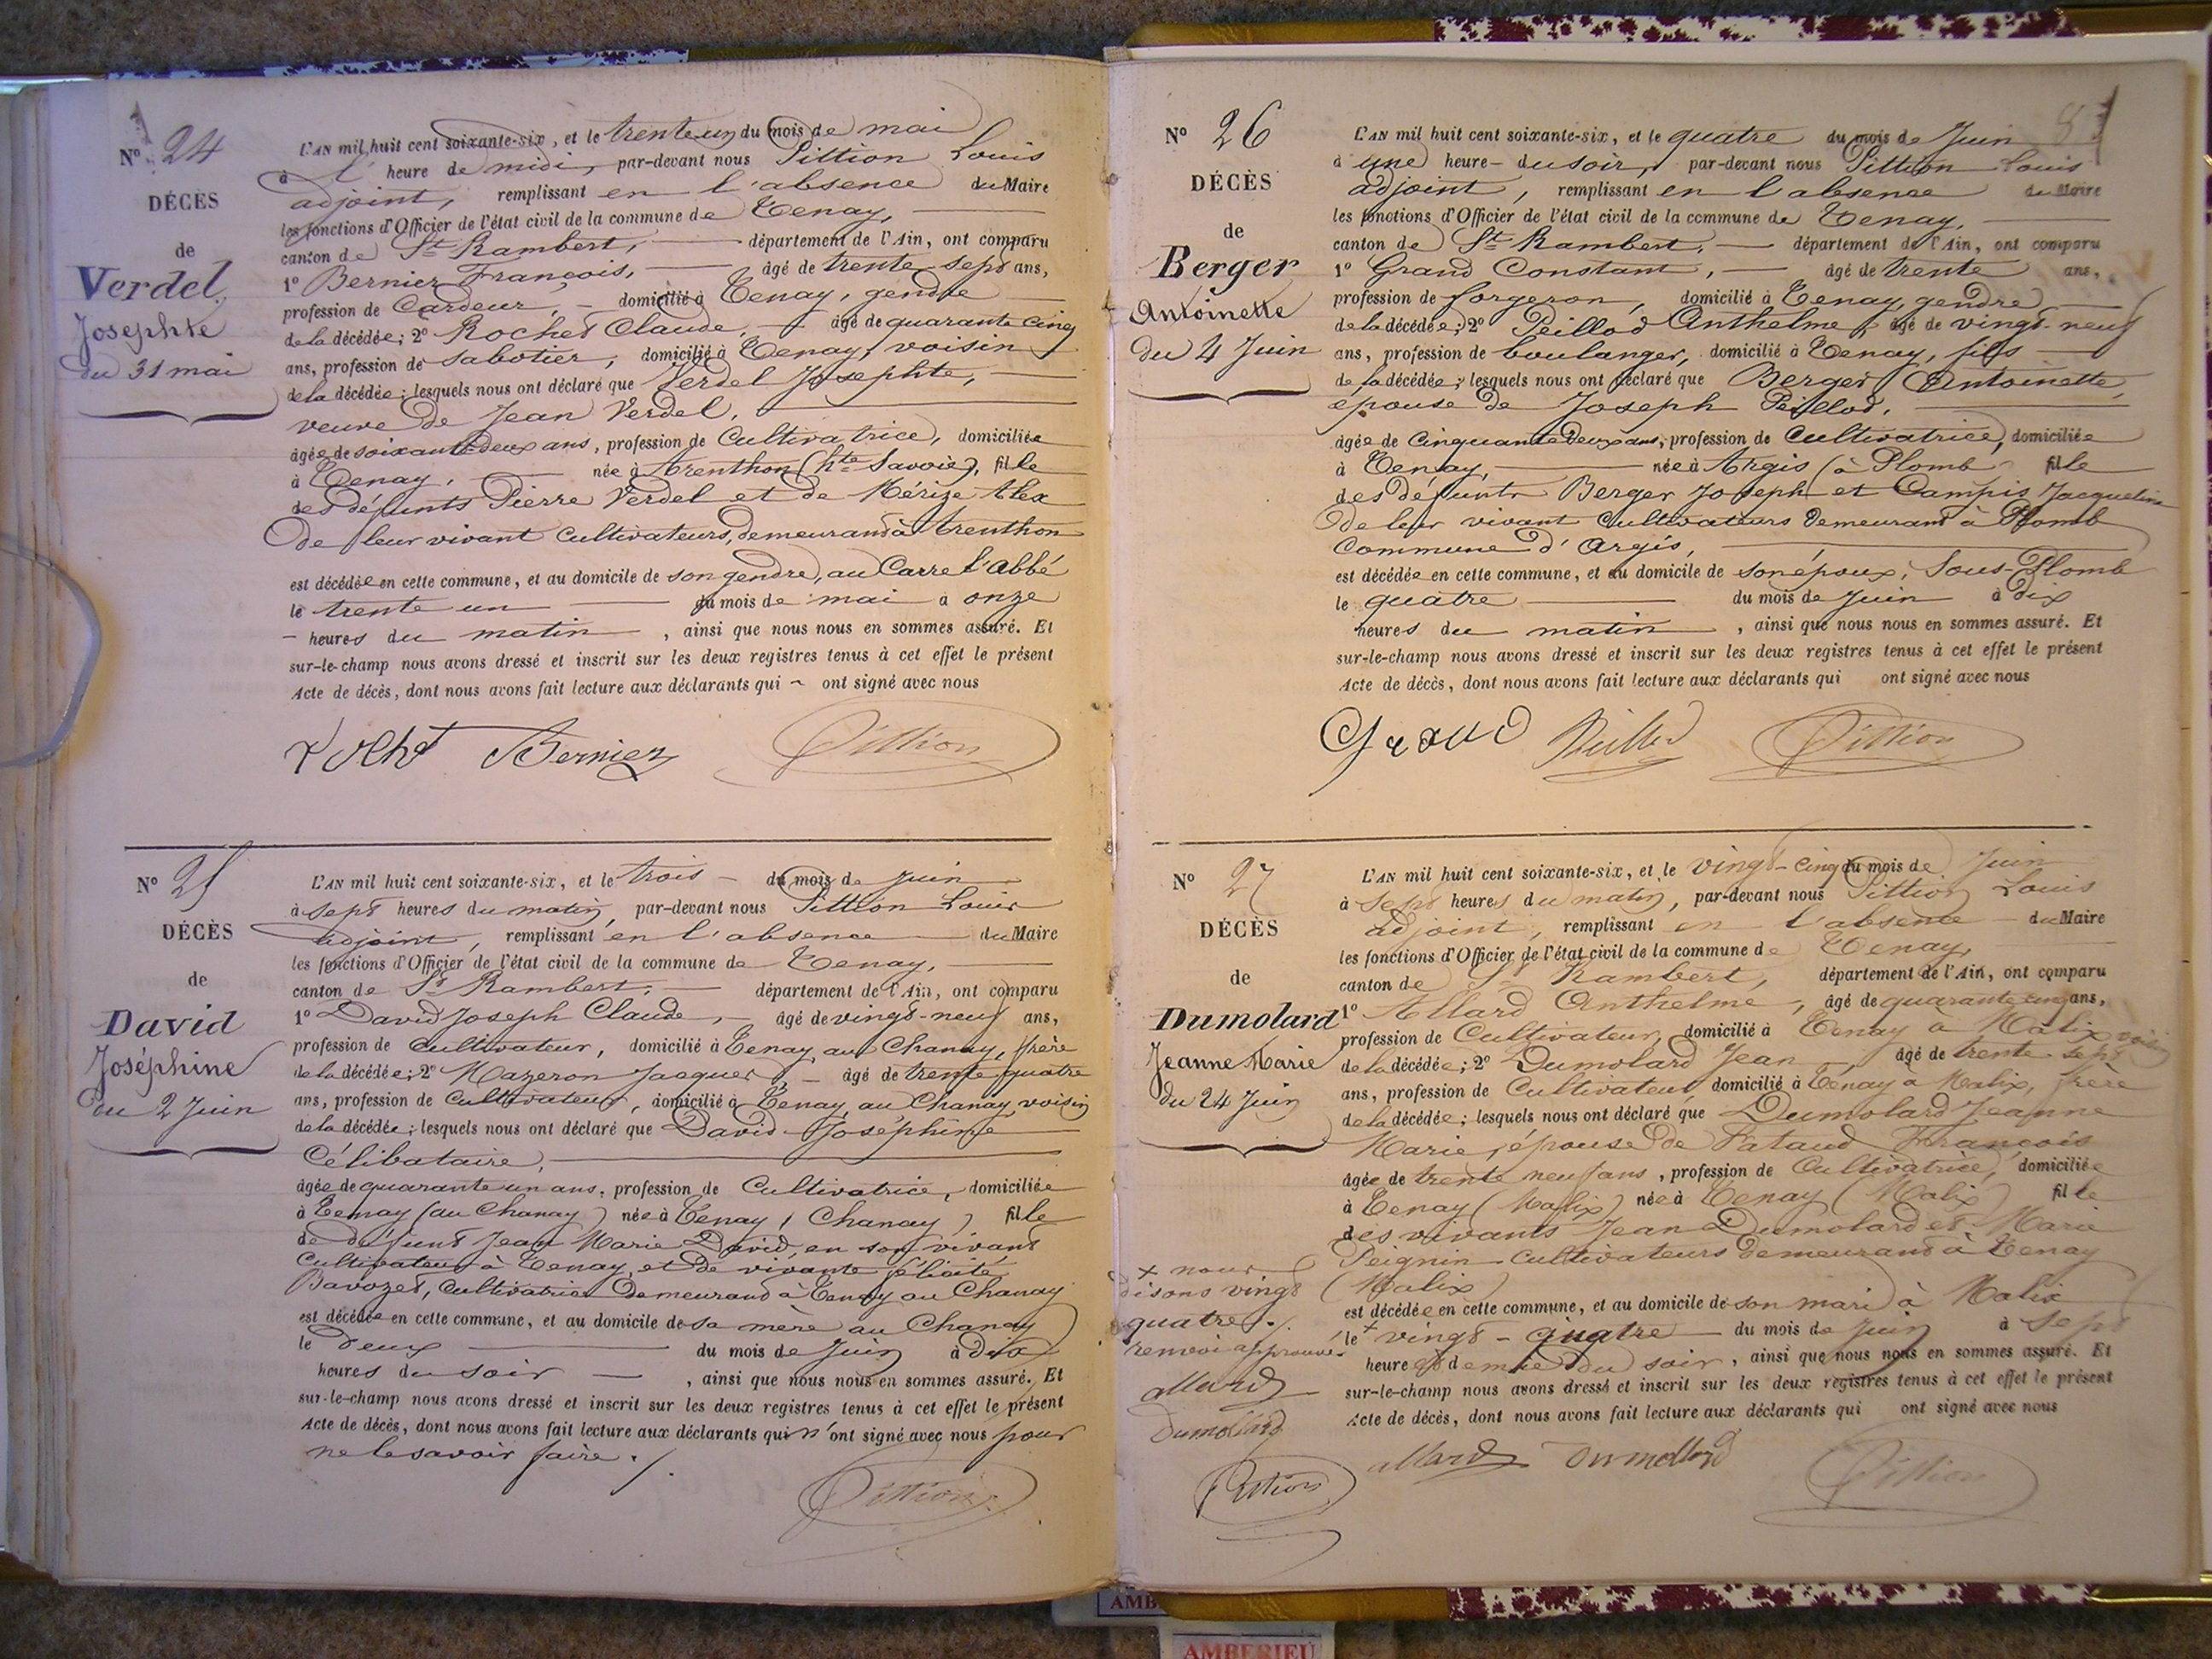 Nº 24
DÉCÈS
de
Verdel
Josephte
du 31 mai
L'AN mil huit cent soixante-six, et le trente un du mois de mai
à l' heure de midi, par-devant nous Pittion Louis
adjoint, remplissant en l'absence du Maire
les fonctions d'Officier de l'état civil de la commune de Tenay,
canton de St Rambert, département de l'Ain, ont comparu
1º Bernier François, âgé de trente sept ans,
profession de Cardeur, domicilié à Tenay, gendre
de la décédée; 2º Rochet Claude, âgé de quarante cinq
ans, profession de sabotier, domicilié à Tenay, voisin
de la décédée; lesquels nous ont déclaré que Verdel Josephte,
veuve de Jean Verdel,
âgée de soixante deux ans, profession de Cultivatrice, domiciliée
à Tenay, née à Arenthon (hte Savoie), fille
des défunts Pierre Verdel et de Mérize Alex
de leur vivant cultivateurs, demeurand à Arenthon
est décédée en cette commune, et au domicile de son gendre, au Carre l'Abbé
le trente un du mois de mai à onze
heures du matin, ainsi que nous nous en sommes assuré. Et
sur-le-champ nous avons dressé et inscrit sur les deux registres tenus à cet effet le présent
Acte de décès, dont nous avons fait lecture aux déclarants qui ont signé avec nous
Bernier Pittion
Nº 25
DÉCÈS
de
David
Joséphine
du 2 Juin
L'AN mil huit cent soixante-six, et le trois du mois de Juin
à sept heures du matin, par-devant nous Pittion Louis
adjoint, remplissant en l'absence du Maire
les fonctions d'Officier de l'état civil de la commune de Tenay,
canton de St Rambert, département de l'Ain, ont comparu
1º David Joseph Claude, âgé de vingt-neuf ans,
profession de cultivateur, domicilié à Tenay au Chanay, frère
de la décédée; 2º Mazeron Jacques, âgé de trente quatre
ans, profession de Cultivateur, domicilié à Tenay, au Chanay, voisin
de la décédée; lesquels nous ont déclaré que David Joséphine
Célibataire,
âgée de quarante un ans, profession de Cultivatrice, domiciliée
à Tenay (au Chanay) née à Tenay (Chanay) fille
de défunt Jean Marie David, en son vivant
Cultivateur à Tenay, et de vivante félicité
Bavozet, Cultivatrice demeurand à Tenay au Chanay
est décédée en cette commune, et au domicile de sa mère au Chanay
le deux du mois de Juin à dix
heures du soir, ainsi que nous nous en sommes assuré. Et
sur-le-champ nous avons dressé et inscrit sur les deux registres tenus à cet effet le présent
Acte de décès, dont nous avons fait lecture aux déclarants qui n'ont signé avec nous pour
ne le savoir faire ./.
Pittion
8
Nº 26
DÉCÈS
de
Berger
Antoinette
du 4 Juin
L'AN mil huit cent soixante-six, et le quatre du mois de Juin
à une heure du soir, par-devant nous Pittion Louis
adjoint, remplissant en l'absence du Maire
les fonctions d'Officier de l'état civil de la commune de Tenay,
canton de St Rambert, département de l'Ain, ont comparu
1º Grand Constant, âgé de trente ans,
profession de forgeron, domicilié à Tenay, gendre
de la décédée; 2º Peillod Anthelme, âgé de vingt-neuf
ans, profession de boulanger, domicilié à Tenay, fils
de la décédée; lesquels nous ont déclaré que Berger Antoinette,
épouse de Joseph Peillod,
âgée de Cinquante deux ans, profession de Cultivatrice, domiciliée
à Tenay, née à Argis (à Plomb fille
des défunts Berger Joseph et Campis Jacqueline
de leur vivant Cultivateurs demeurand à Plomb
Commune d'Argis,
est décédée en cette commune, et au domicile de son époux, Sous-Plomb
le quatre du mois de Juin à dix
heures du matin, ainsi que nous nous en sommes assuré. Et
sur-le-champ nous avons dressé et inscrit sur les deux registres tenus à cet effet le présent
Acte de décès, dont nous avons fait lecture aux déclarants qui ont signé avec nous
Grand Peillod Pittion
Nº 27
DÉCÈS
de
Dumolard
Jeanne Marie
du 24 Juin
L'AN mil huit cent soixante-six, et le vingt-cinq du mois de Juin
à sept heures du matin, par-devant nous Pittion Louis
adjoint, remplissant en l'absence du Maire
les fonctions d'Officier de l'état civil de la commune de Tenay,
canton de St Rambert, département de l'Ain, ont comparu
1º Allard Anthelme, âgé de quarante cinq ans,
profession de Cultivateur, domicilié à Tenay à Malix voisin
de la décédée; 2º Dumolard Jean, âgé de trente sept
ans, profession de Cultivateur domicilié à Tenay à Malix, frère
de la décédée; lesquels nous ont déclaré que Dumolard Jeanne
Marie, épouse de Pataud François
âgée de trente neuf ans, profession de Cultivatrice, domiciliée
à Tenay (Malix) née à Tenay (Malix) fille
des vivants Jean Dumolard et Marie
Peignin cultivateurs demeurand à Tenay
(Malix)
est décédée en cette commune, et au domicile de son mari à Malix
le + vingt-quatre du mois de Juin à sept
heures et demie du soir, ainsi que nous nous en sommes assuré. Et
sur-le-champ nous avons dressé et inscrit sur les deux registres tenus à cet effet le présent
Acte de décès, dont nous avons fait lecture aux déclarants qui ont signé avec nous
allard Dumollard Pittion
+ nous
disons vingt
quatre ./.
renvoi approuvé
allard
Dumollard
Pittion
AMBERIEU